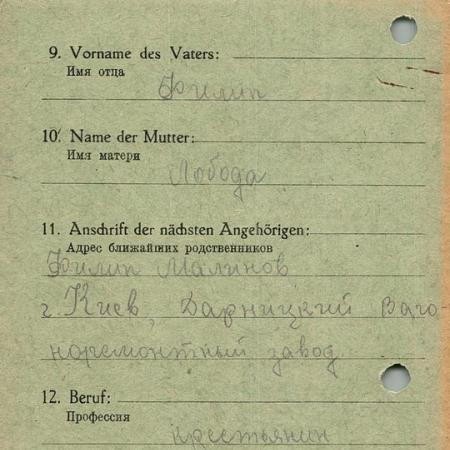 9. Vorname des Vaters:
Имя отца
Филип
10. Name der Mutter:
Имя матери
Лобода
11. Anschrift der nächsten Angehörigen:
Адрес ближайших родственников
Филип Малинов
г. Киев, Дарницкий Ваго-
норемонтный завод
12. Beruf:
Профессия
крестьянин